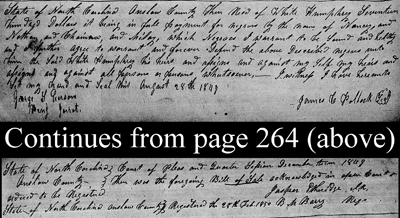 State of North Carolina Onslow County Then Recd of White Humphrey Seventeen
hundred Dollars it being in full payment for negroes by the name of Nancy and
Nathan and Chainey and Nicey, which Negroes I warrant to be Sound and healthy
and I further agree to warrant and forever Defend the above Described negroes unto
him the Said White Humphrey his heirs and assigns and against my Self my heirs and
assigns and against all persons whatsoever In witness I have hereunto
Set my hand and Seal this August 28th 1849
James C Pollock
Jurat
Continues from page 264 (above)
State of North Carolina Court of Pleas and Quarter Session December term 1849
Onslow County Then was the foregoing Bill of Sale acknowledged in open Court &
ordered to be Registered Jasper Etheridge
State of North Carolina Onslow County Registered the 25th Feb 1850